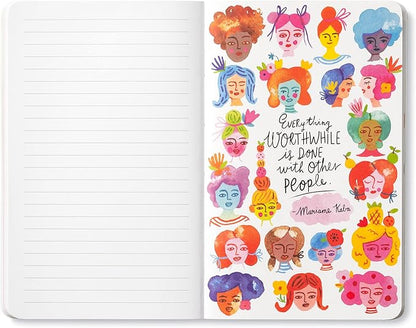 Everything
WORTHWHILE
is DONE
with other
PEOPLE.
Mariame Kaba